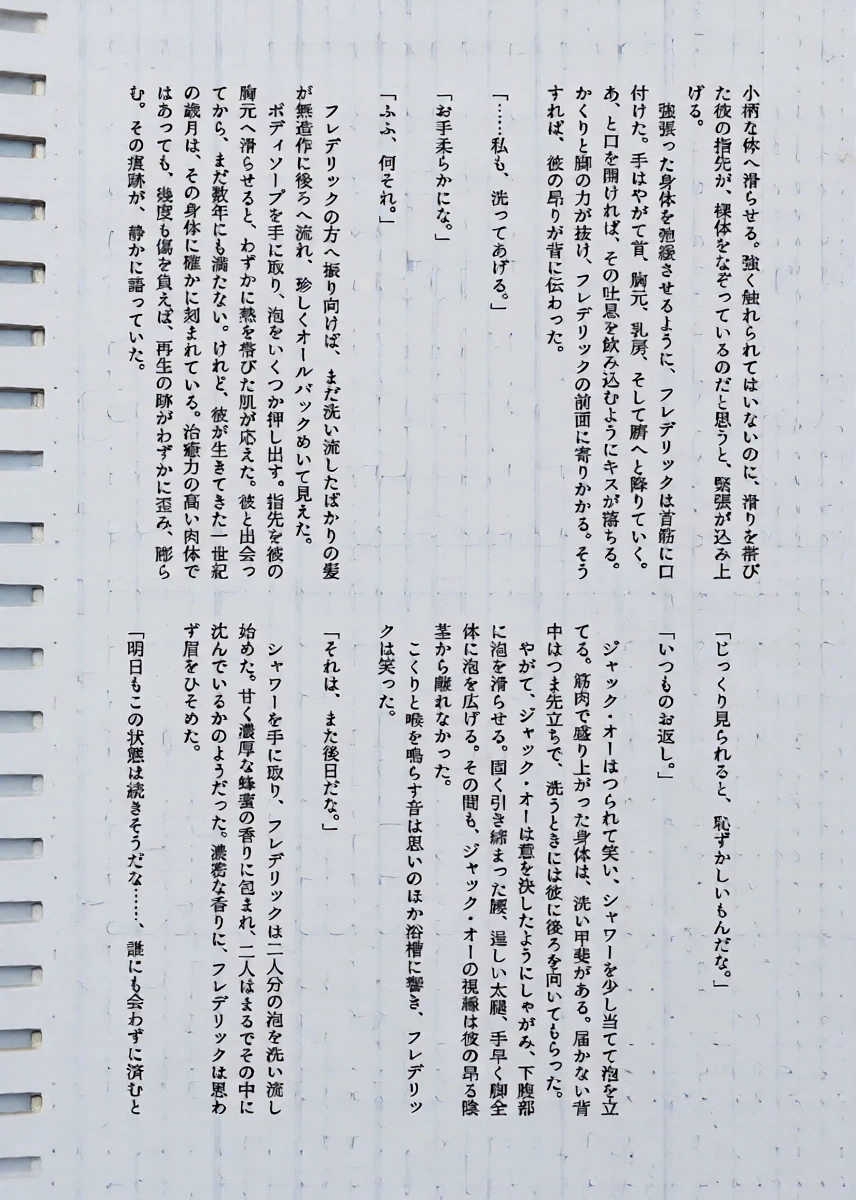 小柄な体へ滑らせる。強く触れられてはいないのに、滑りを帯び
た彼の指先が、裸体をなぞっているのだと思うと、緊張が込み上
げる。
強張った身体を弛緩させるように、フレデリックは首筋に口
付けた。手はやがて首、胸元、乳房、そして臍へと降りていく。
あ、と口を開ければ、その吐息を飲み込むようにキスが落ちる。
かくりと脚の力が抜け、フレデリックの前面に寄りかかる。そう
すれば、彼の昂りが背に伝わった。
「……私も、洗ってあげる。」
「お手柔らかにな。」
「ふふ、何それ。」
フレデリックの方へ振り向けば、まだ洗い流したばかりの髪
が無造作に後ろへ流れ、珍しくオールバックめいて見えた。
ボディソープを手に取り、泡をいくつか押し出す。指先を彼の
胸元へ滑らせると、わずかに熱を帯びた肌が応えた。彼と出会っ
てから、まだ数年にも満たない。けれど、彼が生きてきた一世紀
の歳月は、その身体に確かに刻まれている。治癒力の高い肉体で
はあっても、幾度も傷を負えば、再生の跡がわずかに歪み、膨ら
む。その痕跡が、静かに語っていた。
「じっくり見られると、恥ずかしいもんだな。」
「いつものお返し。」
ジャック・オーはつられて笑い、シャワーを少し当てて泡を立
てる。筋肉で盛り上がった身体は、洗い甲斐がある。届かない背
中はつま先立ちで、洗うときには彼に後ろを向いてもらった。
やがて、ジャック・オーは意を決したようにしゃがみ、下腹部
に泡を滑らせる。固く引き締まった腰、逞しい太腿、手早く脚全
体に泡を広げる。その間も、ジャック・オーの視線は彼の昂る陰
茎から離れなかった。
こくりと喉を鳴らす音は思いのほか浴槽に響き、フレデリッ
クは笑った。
「それは、また後日だな。」
シャワーを手に取り、フレデリックは二人分の泡を洗い流し
始めた。甘く濃厚な蜂蜜の香りに包まれ、二人はまるでその中に
沈んでいるかのようだった。濃密な香りに、フレデリックは思わ
ず眉をひそめた。
「明日もこの状態は続きそうだな……、誰にも会わずに済むと